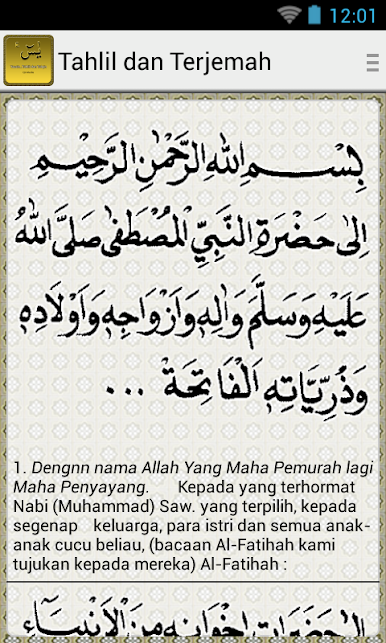 12:01
يس
Tahlil dan Terjemah
بِسْمِ اللهِ الرَّحْمٰنِ الرَّحِيْمِ
اِلٰى حَضْرَةِ النَّبِيِّ الْمُصْطَفٰى صَلَّى اللهُ
عَلَيْهِ وَسَلَّمَ وَاٰلِهٖ وَاَزْوَاجِهٖ وَاَوْلَادِهٖ
وَذُرِّيَّاتِهٖ اَلْفَاتِحَةْ ...
1. Dengnn nama Allah Yang Maha Pemurah lagi
Maha Penyayang. Kepada yang terhormat
Nabi (Muhammad) Saw. yang terpilih, kepada
segenap keluarga, para istri dan semua anak-
anak cucu beliau, (bacaan Al-Fatihah kami
tujukan kepada mereka) Al-Fatihah :
اِخْوَانِهٖ مِنَ الْاَنْبِيَآءِ